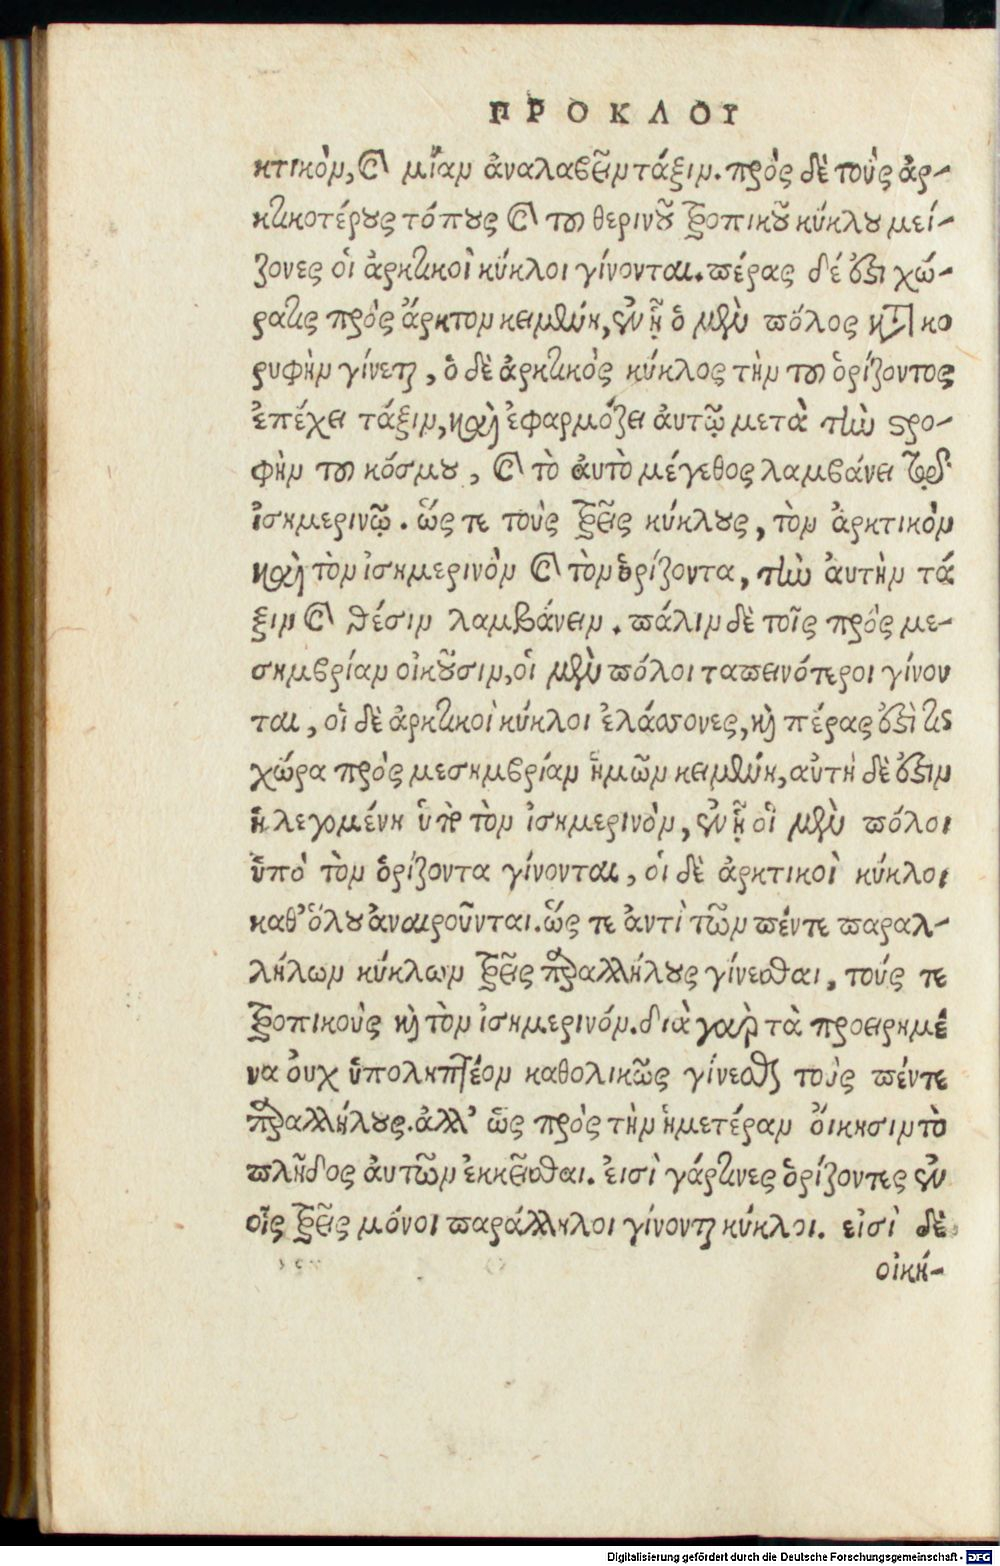 ΠΡΟΚΛΟΥ
κτικὸν, καὶ μίαν ἀναλαβεῖν τάξιν. πρὸς δὲ τοὺς ἀρ-
κτικοτέρους τόπους καὶ τοῦ θερινοῦ τροπικοῦ κύκλου μεί-
ζονες οἱ ἀρκτικοὶ κύκλοι γίνονται. πέρας δέ ἐστι χώ-
ρα τις πρὸς ἄρκτον κειμένη, ἐν ᾗ ὁ μὲν πόλος κατὰ κο
ρυφὴν γίνεται, ὁ δὲ ἀρκτικὸς κύκλος τὴν τοῦ ὁρίζοντος
ἐπέχει τάξιν, καὶ ἐφαρμόζει αὐτῷ μετὰ τὴν στρο-
φὴν τοῦ κόσμου, καὶ τὸ ἀυτὸ μέγεθος λαμβάνει τῷ
ἰσημερινῷ. ὥς τε τοὺς τρεῖς κύκλους, τὸν ἀρκτικὸν
καὶ τὸν ἰσημερινὸν καὶ τὸν ὁρίζοντα, τὴν ἀυτὴν τά
ξιν καὶ θέσιν λαμβάνειν. πάλιν δὲ τοῖς πρὸς με-
σημβρίαν οἰκοῦσιν, οἱ μὲν πόλοι ταπεινότεροι γίνον
ται, οἱ δὲ ἀρκτικοὶ κύκλοι ἐλάσσονες, καὶ πέρας ἐστὶ τις
χώρα πρὸς μεσημβρίαν ἡμῶν κειμένη, αὐτὴ δὲ ἐστιν
ἡ λεγομένη ὑπὸ τὸν ἰσημερινὸν, ἐν ᾗ οἱ μὲν πόλοι
ὑπὸ τὸν ὁρίζοντα γίνονται, οἱ δὲ ἀρκτικοὶ κύκλοι
καθ' ὅλου ἀναιροῦνται. ὥς τε ἀντὶ τῶν πέντε παραλ-
λήλων κύκλων τρεῖς παραλλήλους γίνεσθαι, τούς τε
τροπικοὺς καὶ τὸν ἰσημερινόν. διὰ γὰρ τὰ προειρημέ
να ὀυχ ὑποληπτέον καθολικῶς γίνεσθαι τοὺς πέντε
παραλλήλους. ἀλλ' ὥς πρὸς τὴν ἡμετέραν ὄικησιν τὸ
πλῆθος ἀυτῶν ἐκκεῖσθαι. ἐισὶ γάρ τινες ὁρίζοντες ἐν
οἷς τρεῖς μόνοι παράλληλοι γίνονται κύκλοι. εἰσὶ δὲ
οἰκή-
Digitalisierung gefördert durch die Deutsche Forschungsgemeinschaft - DFG